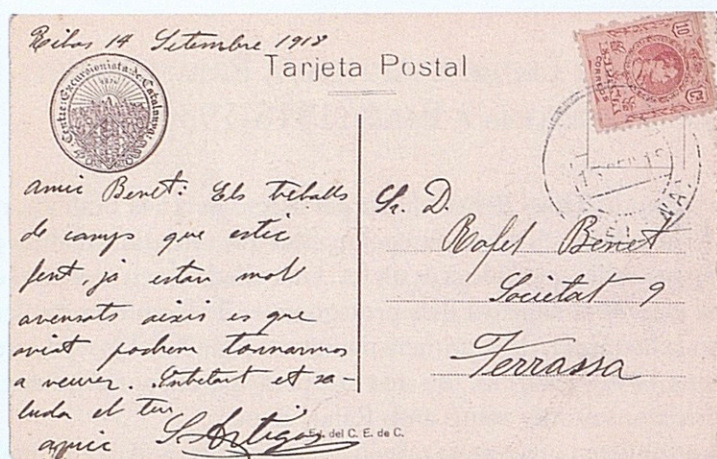 Ribas 14 Setembre 1918
Tarjeta Postal
Centre Excursionista de Catalunya
amic Benet: Els treballs
de camp que estic
fent, ja estan mol
avensats aixis es que
aviat podrem tornarmos
a veurer. Entretant et sa-
luda el teu
amic S. Artigas
Sr. D.
Rafel Benet
Societat 9
Terrassa
Ed. del C. E. de C.
CORREOS
10